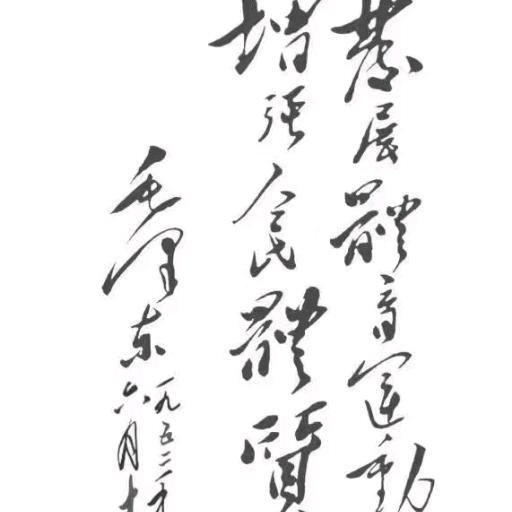 發展體育運動
增强人民體質
毛澤东
一九五二年
六月十